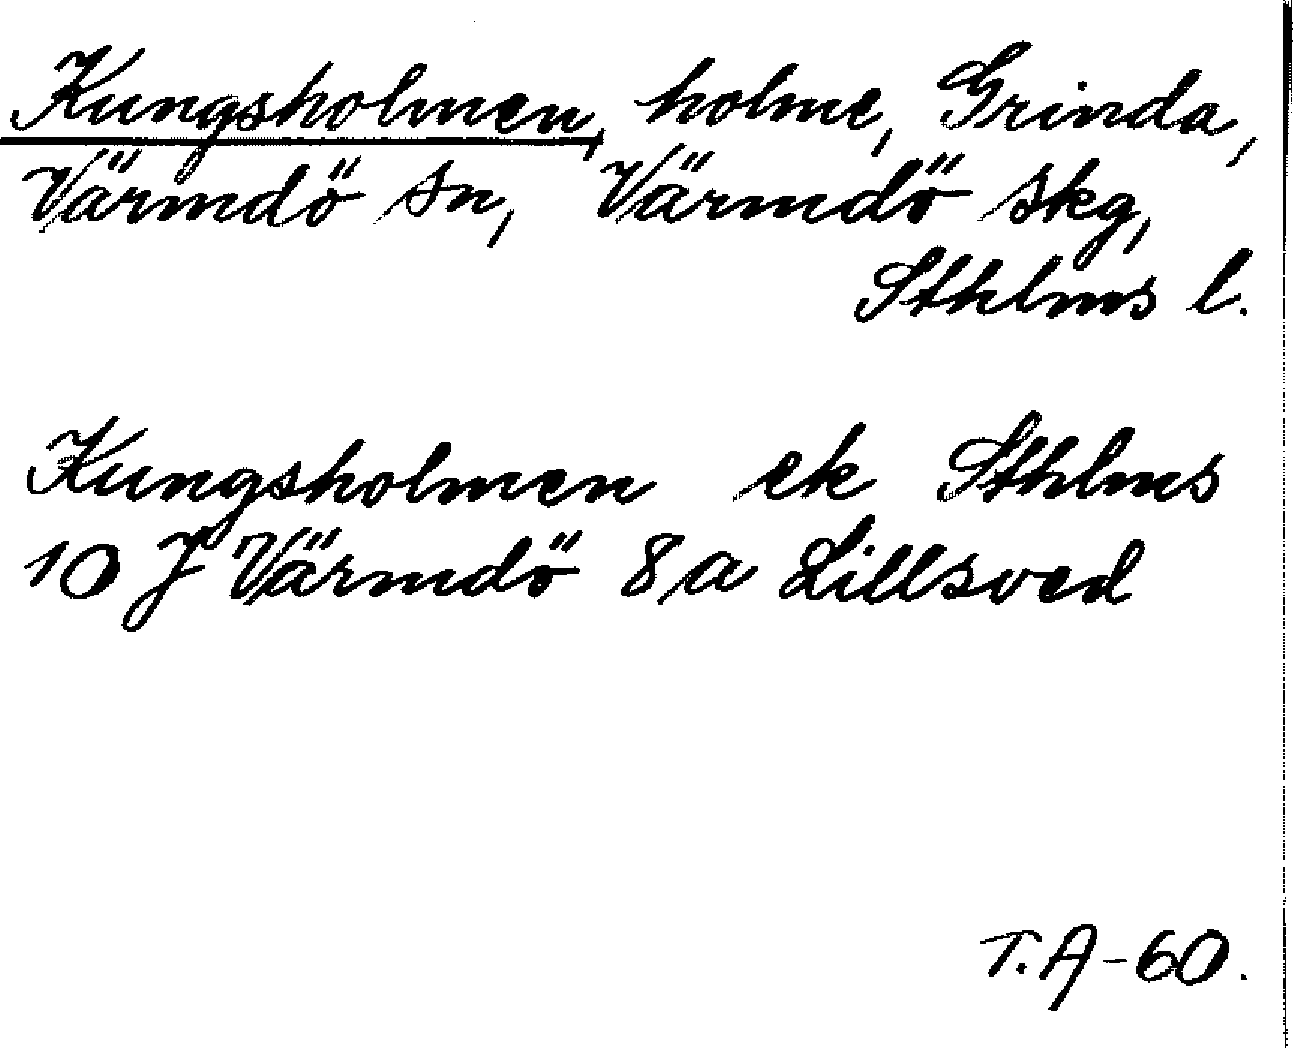 Kungsholmen, holme, Grinda,
Värmdö sn, Värmdö skg,
Sthlms l.
Kungsholmen ek Sthlms
10 J Värmdö 8a Lillsved
T.A-60.